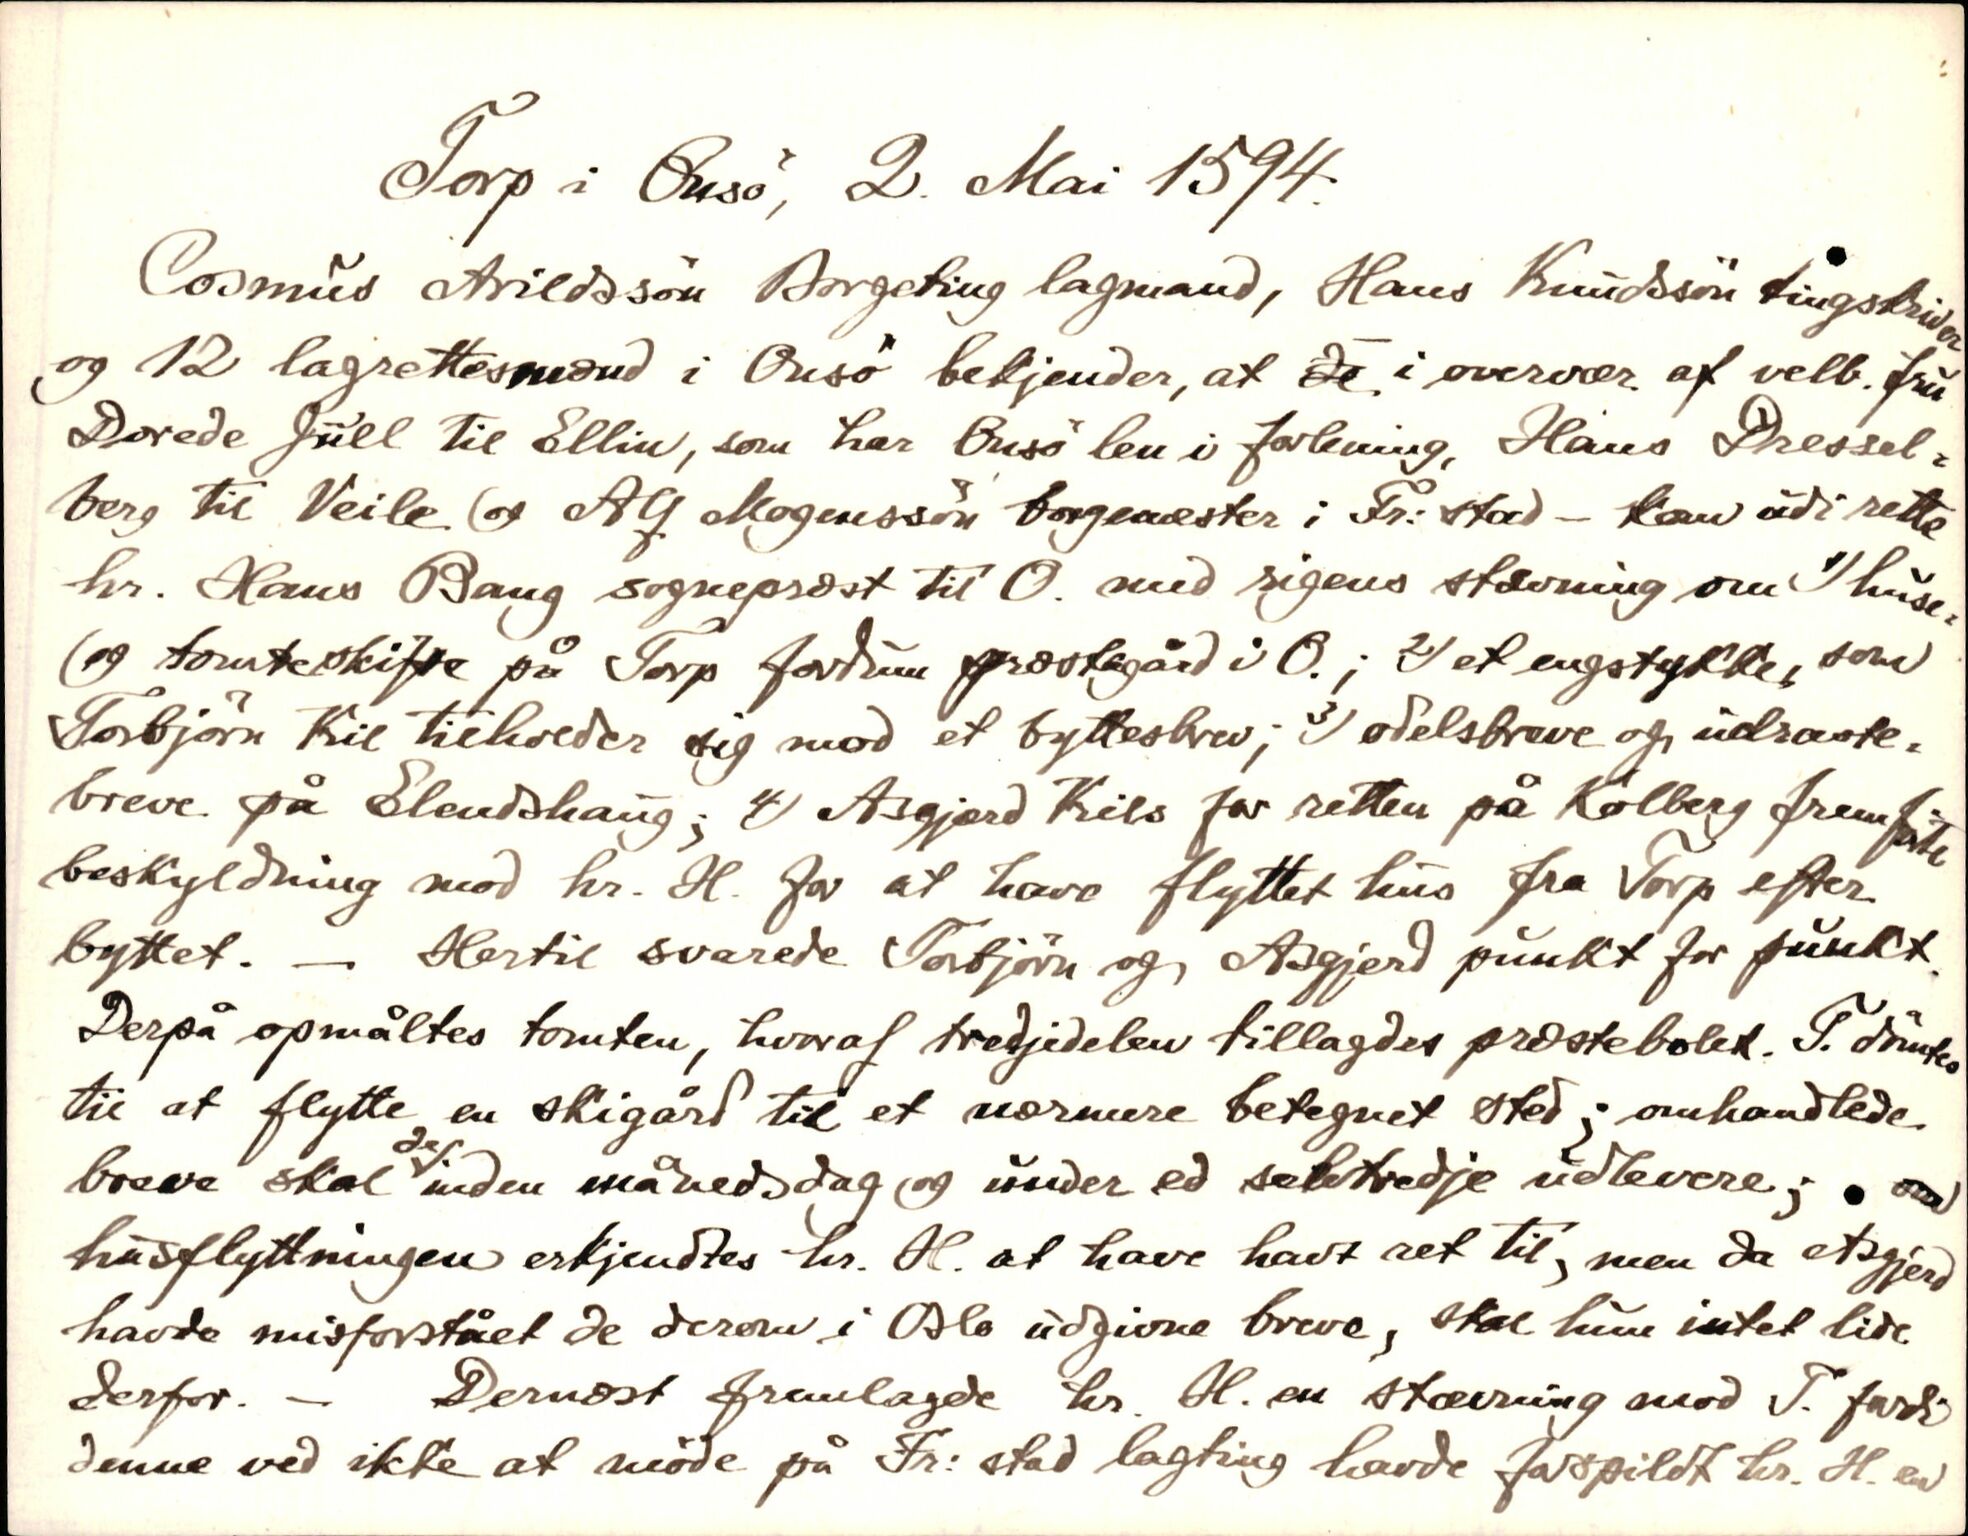 Torp i Onsö, 2. Mai 1594.
Cosmus Arildssön Borgeting lagmand, Hans Knudssön tingskriver
og 12 lagrettesmænd i Onsö bekjender, at de i overvær af velb. fru
Dorede Juell til Ellin, som har Onsö len i forlening, Hans Dressel-
berg til Veile og Alf Mogenssön borgemester i Fr:stad – kom udi rette
hr. Hans Bang sogneprest til O. med rigens stævning om 1) huse-
og tomteskifte på Torp fordum præstegård i O.; 2) et engstykke, som
Torbjörn Kil tilholder sig mod et byttesbrev; 3) odelsbreve og udraste-
breve på Elendshaug; 4) Asgjerd Kils for retten på Kolberg fremförte
beskyldning mod hr. H. for at have flyttet hus fra Torp efter
byttet. – Hertil svarede Torbjörn og Asgjerd punkt for punkt.
Derpå opmåltes tomten, hvoraf tredjedelen tillagdes præstebolet. T. dömtes
til at flytte en skigård til et nærmere betegnet sted; omhandlede
breve skal de inden månedsdag og under ed selvtredje udlevere;
husflyttningen erkjendtes hr. H. at have havt ret til, men da Asgjerd
havde misforstået de derom i Oslo udgivne breve, skal hun intet lide
derfor. – Dernæst fremlagde hr. H. en stævning mod T. fordi
denne ved ikke at möde på Fr:stad lagting havde forspildt hr. H. en